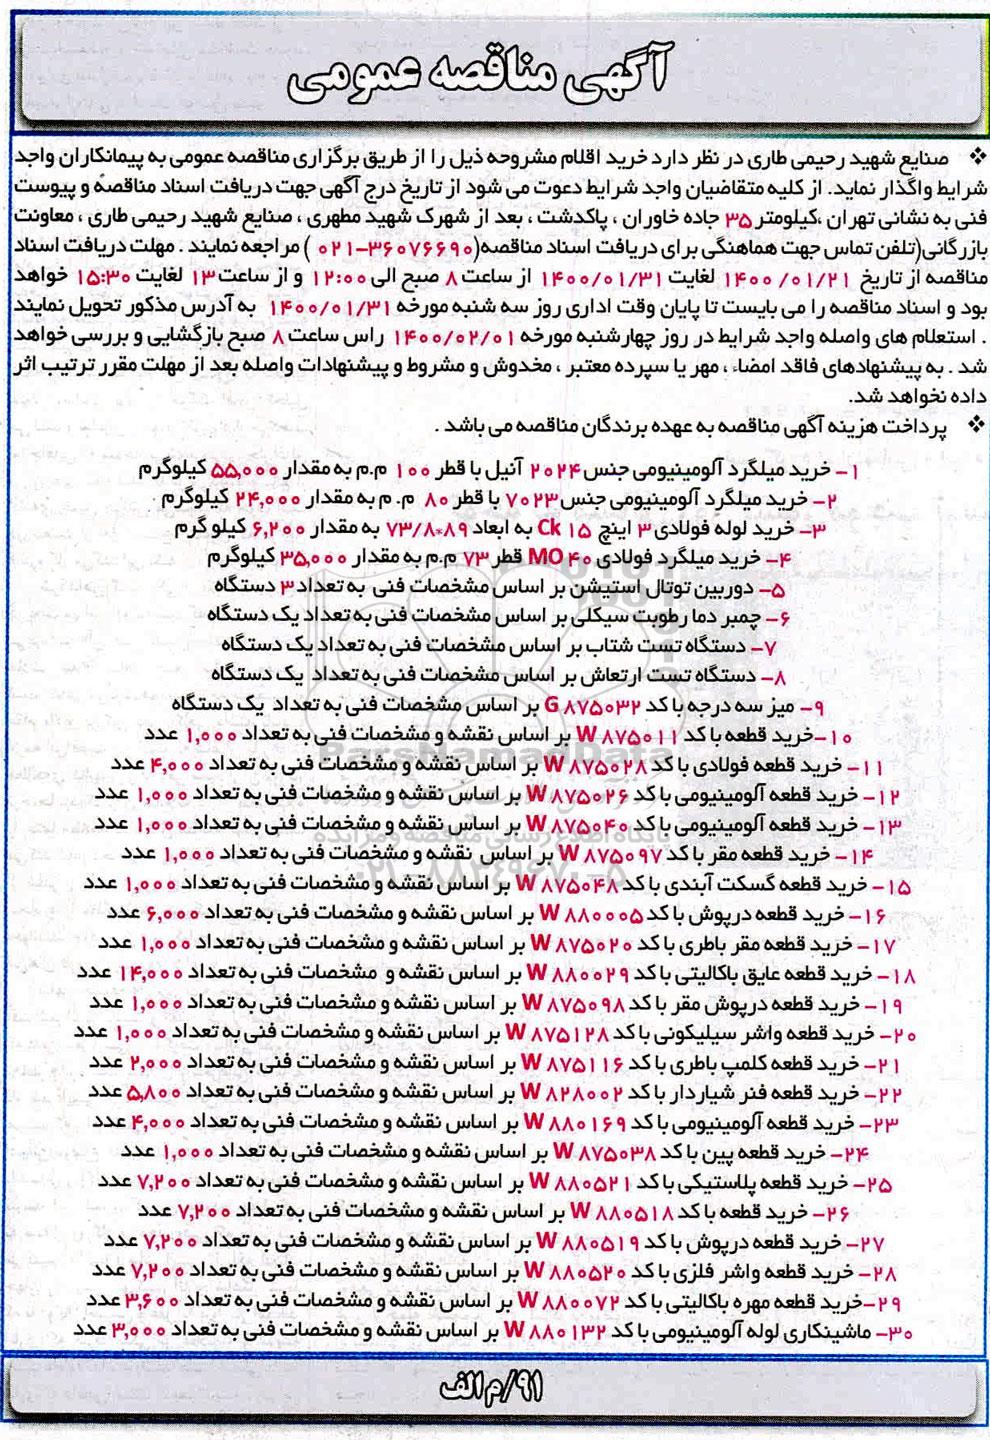 آگهی مناقصه عمومی
❖ صنایع شهید رحیمی طاری در نظر دارد خرید اقلام مشروحه ذیل را از طریق برگزاری مناقصه عمومی به پیمانکاران واجد
شرایط واگذار نماید. از کلیه متقاضیان واجد شرایط دعوت می شود از تاریخ درج آگهی جهت دریافت اسناد مناقصه و پیوست
فنی به نشانی تهران ،کیلومتر ۳۵ جاده خاوران ، پاکدشت ، بعد از شهرک شهید مطهری ، صنایع شهید رحیمی طاری ، معاونت
بازرگانی(تلفن تماس جهت هماهنگی برای دریافت اسناد مناقصه(۳۶۰۷۶۶۹۰-۰۲۱ ) مراجعه نمایند . مهلت دریافت اسناد
مناقصه از تاریخ ۱۴۰۰/۰۱/۲۱ لغایت ۱۴۰۰/۰۱/۳۱ از ساعت ۸ صبح الی ۱۲:۰۰ و از ساعت ۱۳ لغایت ۱۵:۳۰ خواهد
بود و اسناد مناقصه را می بایست تا پایان وقت اداری روز سه شنبه مورخه ۱۴۰۰/۰۱/۳۱ به آدرس مذکور تحویل نمایند
. استعلام های واصله واجد شرایط در روز چهارشنبه مورخه ۱۴۰۰/۰۲/۰۱ راس ساعت ۸ صبح بازگشایی و بررسی خواهد
شد . به پیشنهادهای فاقد امضاء ، مهر یا سپرده معتبر ، مخدوش و مشروط و پیشنهادات واصله بعد از مهلت مقرر ترتیب اثر
داده نخواهد شد.
❖ پرداخت هزینه آگهی مناقصه به عهده برندگان مناقصه می باشد .
۱- خرید میلگرد آلومینیومی جنس ۲۰۲۴ آنیل با قطر ۱۰۰ م.م به مقدار ۵۵,۰۰۰ کیلوگرم
۲- خرید میلگرد آلومینیومی جنس ۷۰۲۳ با قطر ۸۰ م.م به مقدار ۲۴,۰۰۰ کیلوگرم
۳- خرید لوله فولادی ۳ اینچ Ck ۱۵ به ابعاد ۸۹*۷۳/۸ به مقدار ۶,۲۰۰ کیلو گرم
۴- خرید میلگرد فولادی MO ۴۰ قطر ۷۳ م.م به مقدار ۳۵,۰۰۰ کیلوگرم
۵- دوربین توتال استیشن بر اساس مشخصات فنی به تعداد ۳ دستگاه
۶- چمبر دما رطوبت سیکلی بر اساس مشخصات فنی به تعداد یک دستگاه
۷- دستگاه تست شتاب بر اساس مشخصات فنی به تعداد یک دستگاه
۸- دستگاه تست ارتعاش بر اساس مشخصات فنی به تعداد یک دستگاه
۹- میز سه درجه با کد G ۸۷۵۰۳۲ بر اساس مشخصات فنی به تعداد یک دستگاه
۱۰-خرید قطعه با کد W ۸۷۵۰۱۱ بر اساس نقشه و مشخصات فنی به تعداد ۱,۰۰۰ عدد
ParsNamadData
۱۱- خرید قطعه فولادی با کد W ۸۷۵۰۲۸ بر اساس نقشه و مشخصات فنی به تعداد ۴,۰۰۰ عدد
۱۲- خرید قطعه آلومینیومی با کد W ۸۷۵۰۲۶ بر اساس نقشه و مشخصات فنی به تعداد ۱,۰۰۰ عدد
۱۳- خرید قطعه آلومینیومی با کد W ۸۷۵۰۴۰ بر اساس نقشه و مشخصات فنی به تعداد ۱,۰۰۰ عدد
۱۴- خرید قطعه مقر با کد W ۸۷۵۰۹۷ بر اساس نقشه و مشخصات فنی به تعداد ۱,۰۰۰ عدد
۱۵- خرید قطعه گسکت آبندی با کد W ۸۷۵۰۴۸ بر اساس نقشه و مشخصات فنی به تعداد ۱,۰۰۰ عدد
۱۶- خرید قطعه درپوش با کد W ۸۸۰۰۰۵ بر اساس نقشه و مشخصات فنی به تعداد ۶,۰۰۰ عدد
۱۷- خرید قطعه مقر باطری با کد W ۸۷۵۰۲۰ بر اساس نقشه و مشخصات فنی به تعداد ۱,۰۰۰ عدد
۱۸- خرید قطعه عایق باکالیتی با کد W ۸۸۰۰۲۹ بر اساس نقشه و مشخصات فنی به تعداد ۱۴,۰۰۰ عدد
۱۹- خرید قطعه درپوش مقر با کد W ۸۷۵۰۹۸ بر اساس نقشه و مشخصات فنی به تعداد ۱,۰۰۰ عدد
۲۰- خرید قطعه واشر سیلیکونی با کد W ۸۷۵۱۲۸ بر اساس نقشه و مشخصات فنی به تعداد ۱,۰۰۰ عدد
۲۱- خرید قطعه کلمپ باطری با کد W ۸۷۵۱۱۶ بر اساس نقشه و مشخصات فنی به تعداد ۲,۰۰۰ عدد
۲۲- خرید قطعه فنر شیاردار با کد W ۸۲۸۰۰۲ بر اساس نقشه و مشخصات فنی به تعداد ۵,۸۰۰ عدد
۲۳- خرید قطعه آلومینیومی با کد W ۸۸۰۱۶۹ بر اساس نقشه و مشخصات فنی به تعداد ۴,۰۰۰ عدد
۲۴- خرید قطعه پین با کد W ۸۷۵۰۳۸ بر اساس نقشه و مشخصات فنی به تعداد ۱,۰۰۰ عدد
۲۵- خرید قطعه پلاستیکی با کد W ۸۸۰۵۲۱ بر اساس نقشه و مشخصات فنی به تعداد ۷,۲۰۰ عدد
۲۶- خرید قطعه با کد W ۸۸۰۵۱۸ بر اساس نقشه و مشخصات فنی به تعداد ۷,۲۰۰ عدد
۲۷- خرید قطعه درپوش با کد W ۸۸۰۵۱۹ بر اساس نقشه و مشخصات فنی به تعداد ۷,۲۰۰ عدد
۲۸- خرید قطعه واشر فلزی با کد W ۸۸۰۵۲۰ بر اساس نقشه و مشخصات فنی به تعداد ۷,۲۰۰ عدد
۲۹-خرید قطعه مهره باکالیتی با کد W ۸۸۰۰۷۲ بر اساس نقشه و مشخصات فنی به تعداد ۳,۶۰۰ عدد
۳۰- ماشینکاری لوله آلومینیومی با کد W ۸۸۰۱۳۲ بر اساس نقشه و مشخصات فنی به تعداد ۳,۰۰۰ عدد
۹۱/م الف